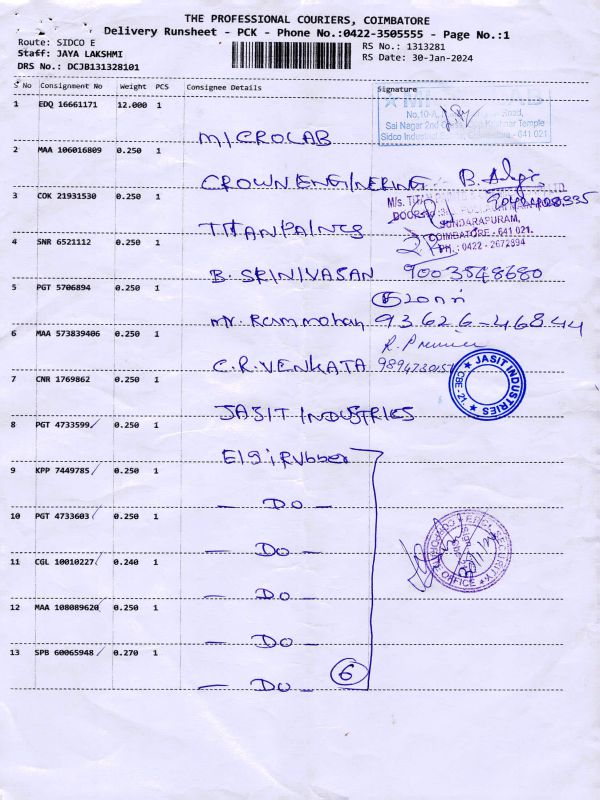 THE PROFESSIONAL COURIERS, COIMBATORE
Delivery Runsheet - PCK - Phone No.:0422-3505555 - Page No.:1
Route: SIDCO E
RS No.: 1313281
Staff: JAYA LAKSHMI
RS Date: 30-Jan-2024
DRS No.: DCJB131328101
S No Consignment No Weight PCS Consignee Details Signature
1 EDQ 16661171 12.000 1
No.10-A, Road,
Sai Nagar 2nd Temple
Sidco Industrial - 641 021
MICROLAB
2 MAA 106016809 0.250 1
CROWN ENGINEERING B.
3 COK 21931530 0.250 1
M/s. LTD
DOOR
SUNDARAPURAM,
COIMBATORE - 641 021.
PH.: 0422 - 2672894
TITAN PAINTS
4 SNR 6521112 0.250 1
B. SRINIVASAN 9003548680
5 PGT 5706894 0.250 1
Mr. Ram mohan 93626-46844
6 MAA 573839406 0.250 1
C.R. VENKATA
JASIT INDUSTRIES
CBE - 21.
7 CNR 1769862 0.250 1
JASIT INDUSTRIES
8 PGT 4733599 0.250 1
Elgi Rubber
9 KPP 7449785 0.250 1
— Do —
10 PGT 4733603 0.250 1
— Do —
SECURITY
OFFICE
11 CGL 10010227 0.240 1
— Do —
12 MAA 108089620 0.250 1
— Do —
13 SPB 60065948 0.270 1
6
— Do —